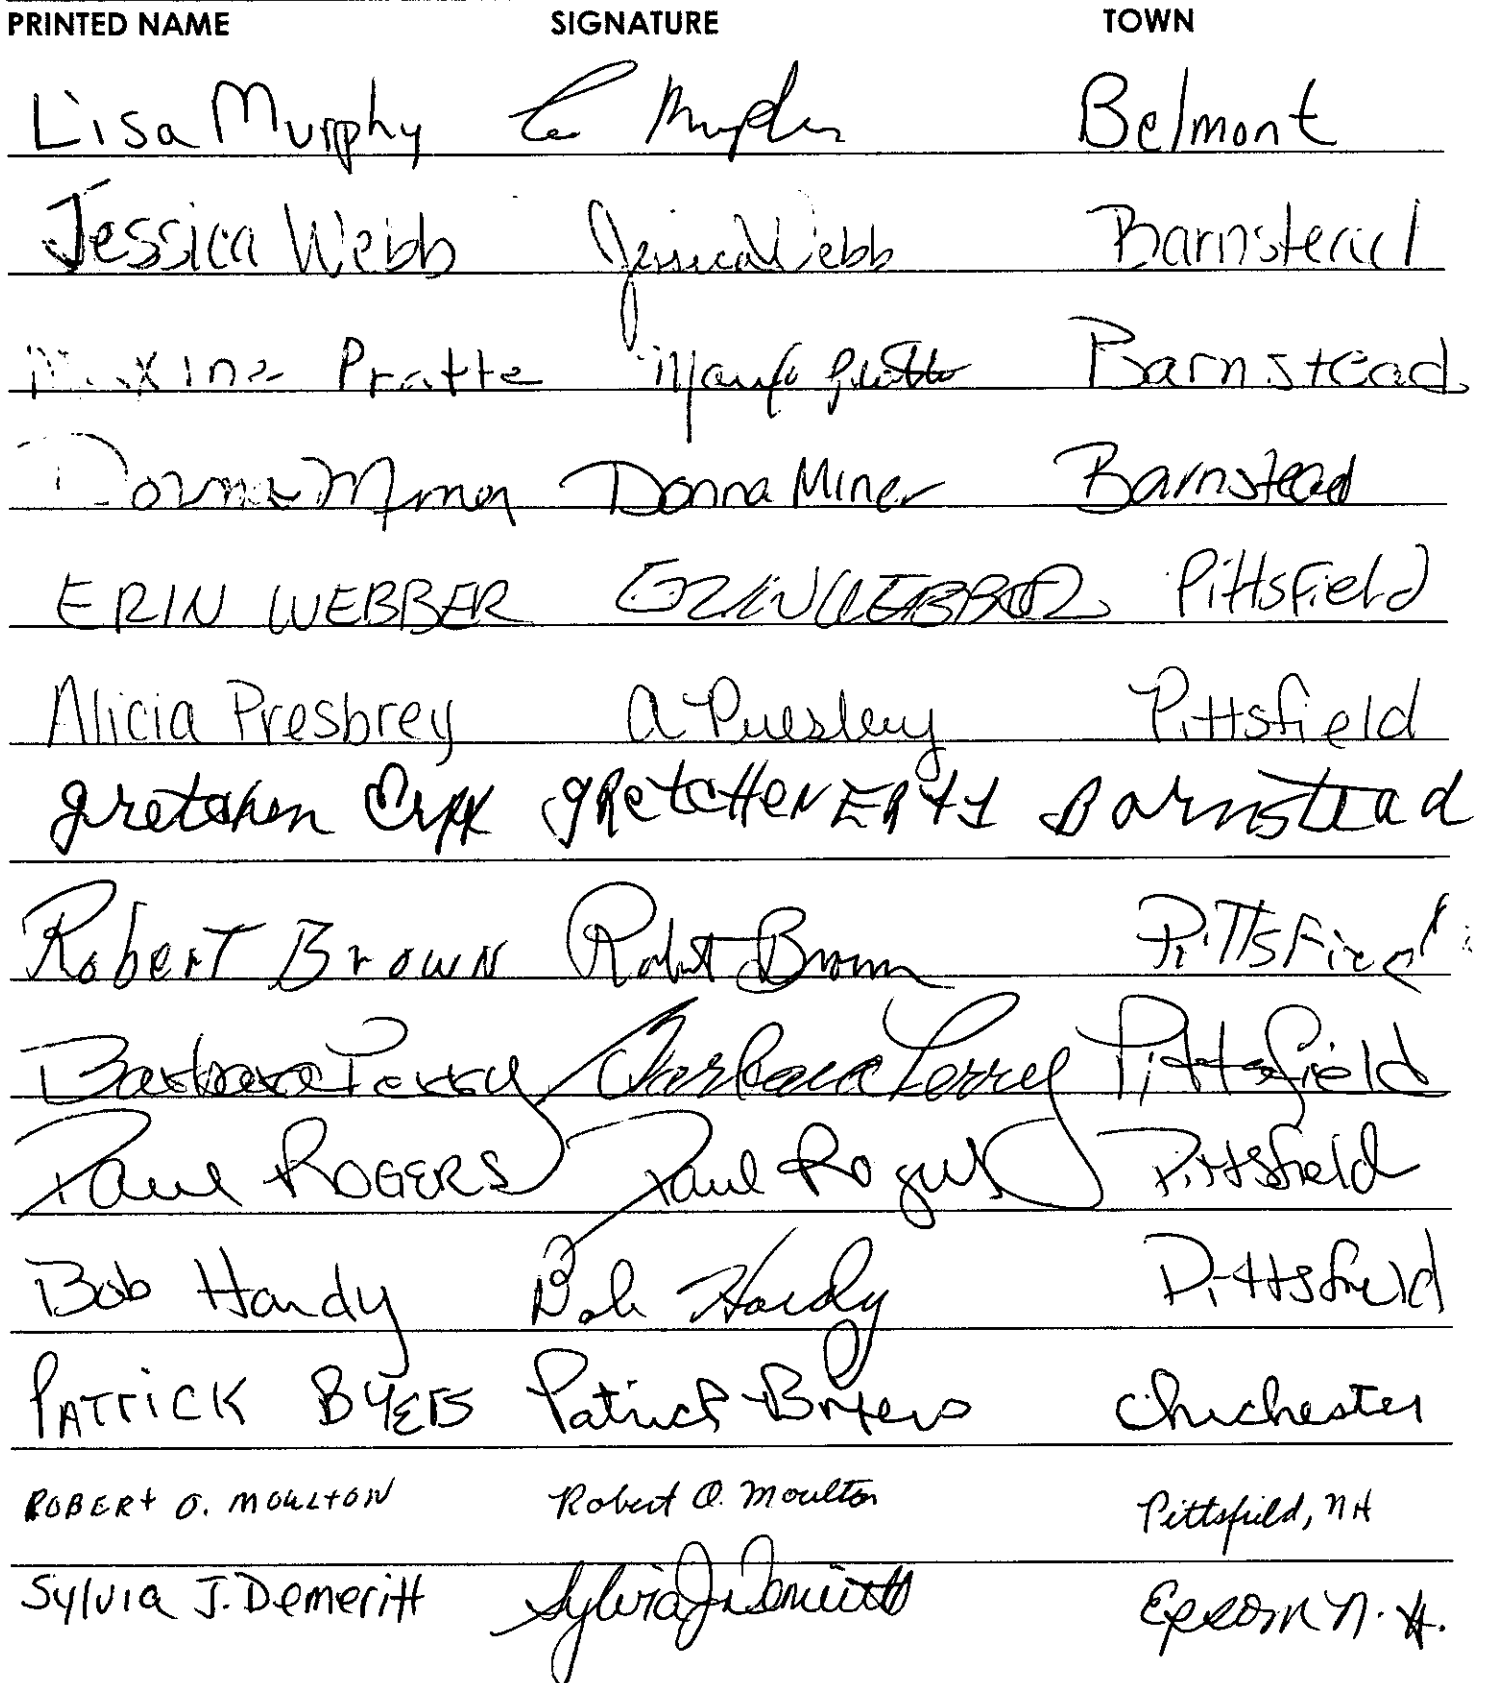 PRINTED NAME SIGNATURE TOWN
Lisa Murphy Murphy Belmont
Jessica Webb Jessica Webb Barnstead
Maxine Pratte Maxine Pratte Barnstead
Donna Miner Donna Miner Barnstead
ERIN WEBBER ERIN WEBBER Pittsfield
Alicia Presbrey A Presbrey Pittsfield
gretchen gRetcHeN Barnstead
Robert Brown Robert Brown PiTTsField
Barbara Perry Barbara Perry Pittsfield
Paul ROGERS Paul Rogers Pittsfield
Bob Hardy Bob Hardy Pittsfield
PATRICK BYERS Patrick Byers Chichester
ROBERt O. MOULTON Robert O. Moulton Pittsfield, NH
Sylvia J. Demeritt Sylvia J. Demeritt Epsom N.H.